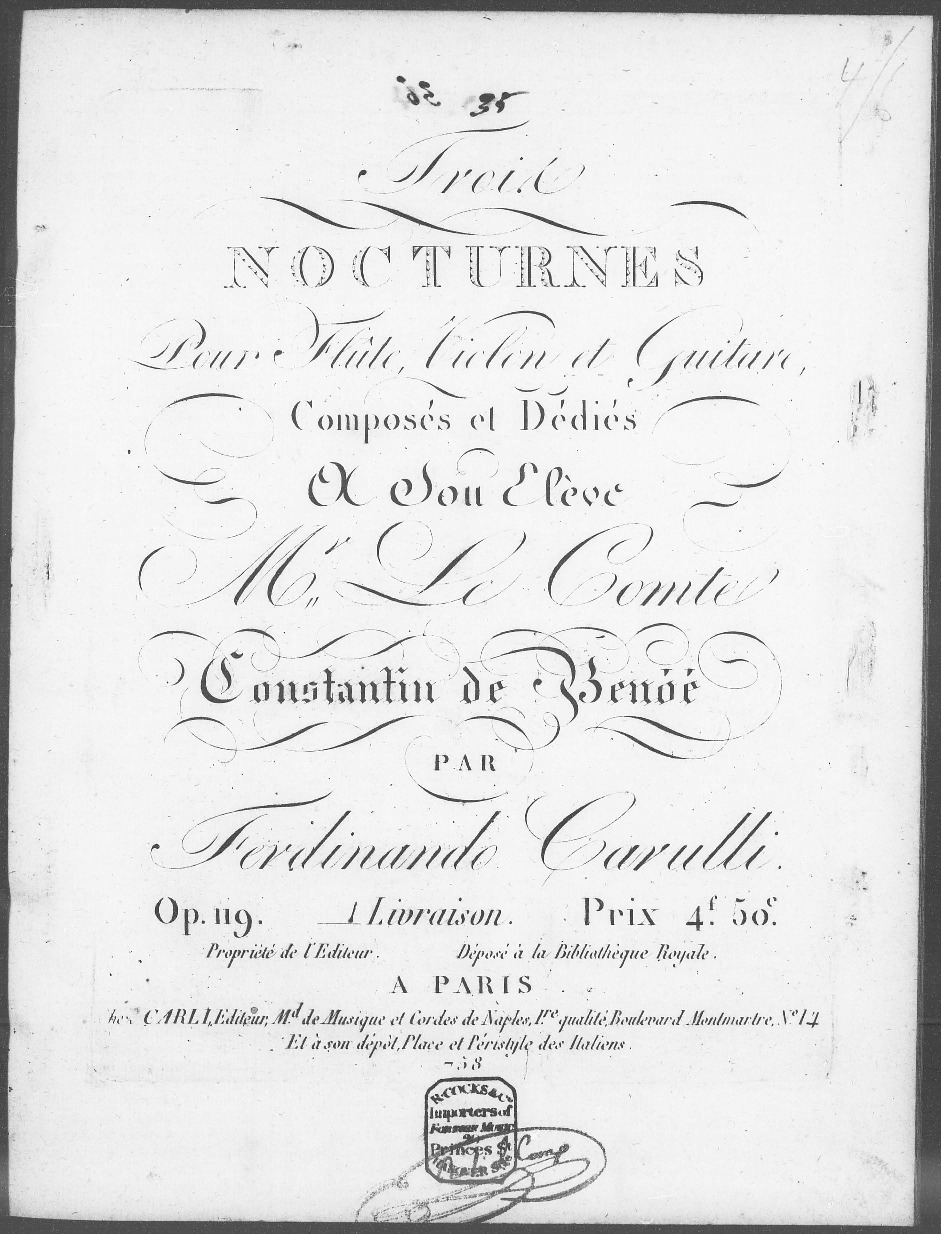 35
Troix
NOCTURNES
Pour Flûte, Violon et Guitare,
Composés et Dédiés
A Son Elève
Mr. Le Comte
Constantin de Benóé
PAR
Ferdinando Carulli.
Op. 119. 1 Livraison. Prix 4f. 50c.
Propriété de l'Editeur. Déposé à la Bibliothèque Royale.
A PARIS
CARLI, Editeur, Md. de Musique et Cordes de Naples, 1re qualité, Boulevard Montmartre, No 14
Et à son dépôt, Place et Péristyle des Italiens.
R. COCKS & Co
Importers of
Foreign Music
Princes St
HANOVER SQre